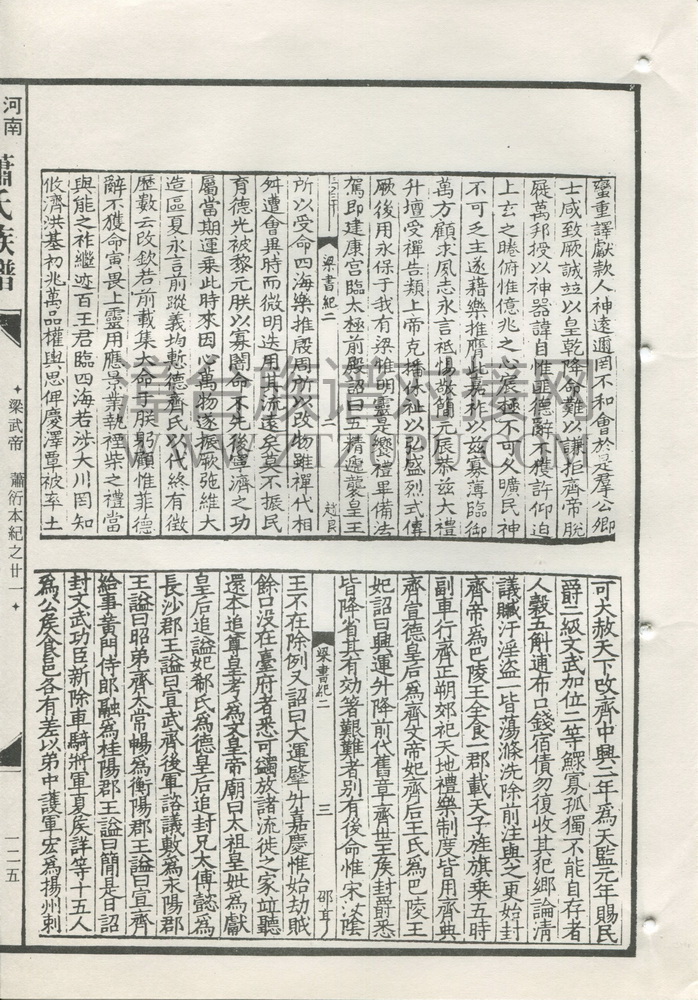 蠻重譯獻款人神遠邇罔不和會於是羣公卿
士咸致厥誠並以皇乾降命難以謙拒齊帝脫
屣萬邦授以神器諱自惟匪德辭不獲許仰迫
上玄之睠俯惟億兆之心宸極不可久曠民神
不可乏主遂藉樂推膺此嘉祚以茲寡薄臨御
萬方顧求夙志永言祗惕敬簡元辰恭茲大禮
升壇受禪告類上帝克播休祉以弘盛烈式傳
厥後用永保于我有梁惟明靈是饗禮畢備法
駕即建康宫臨太極前殿詔曰五精遞襲皇王
梁書紀二
二
趙良
所以受命四海樂推殷周所以改物雖禪代相
舛遭會異時而微明迭用其流遠矣莫不振民
育德光被黎元朕以寡闇命不先後寧濟之功
屬當期運乘此時來因心萬物遂振厥弛維大
造區夏永言前蹤義均慙德齊氏以代終有徵
歷數云改欽若前載集大命于朕躬顧惟菲德
辭不獲命寅畏上靈用應景業執禋柴之禮當
與能之祚繼迹百王君臨四海若涉大川罔知
攸濟洪基初兆萬品權輿思俾慶澤覃被率土
可大赦天下改齊中興二年爲天監元年賜民
爵二級文武加位二等鰥寡孤獨不能自存者
人穀五斛逋布口錢宿債勿復收其犯鄉論清
議贓汙淫盜一皆蕩滌洗除前注與之更始封
齊帝爲巴陵王全食一郡載天子旌旗乘五時
副車行齊正朔郊祀天地禮樂制度皆用齊典
齊宣德皇后爲齊文帝妃齊后王氏爲巴陵王
妃詔曰興運升降前代舊章齊世王侯封爵悉
皆降省其有効著艱難者别有後命惟宋汝陰
梁書紀二
三
邵亨
王不在除例又詔曰大運肇升嘉慶惟始劫賊
餘口没在臺府者悉可蠲放諸流徙之家並聽
還本追尊皇考爲文皇帝廟曰太祖皇妣爲獻
皇后追謚妃郗氏爲德皇后追封兄太傅懿爲
長沙郡王謚曰宣武齊後軍諮議敷爲永陽郡
王謚曰昭弟齊太常暢爲衡陽郡王謚曰宣齊
給事黄門侍郎融爲桂陽郡王謚曰簡是日詔
封文武功臣新除車騎將軍夏侯詳等十五人
爲公侯食邑各有差以弟中護軍宏爲揚州刺
河南
蕭氏族譜
梁武帝 蕭衍本紀之廿一
一二五
漳台族谱对接网
WWW.ZTZUPU.COM